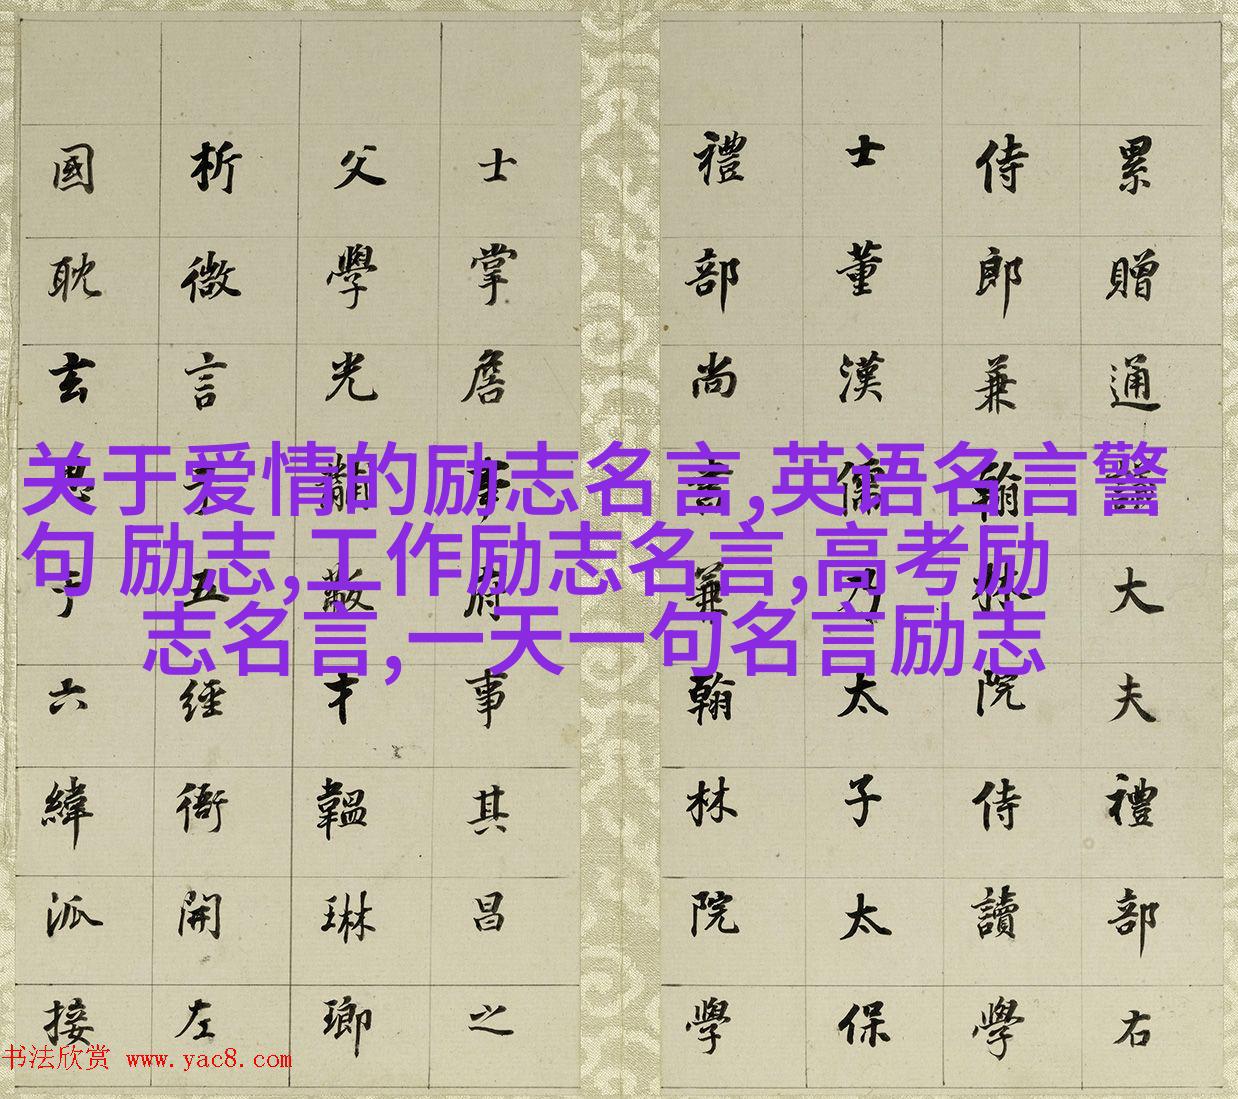 累贈通大夫禮部右
侍郎兼翰林院侍讀學
士董漢儒乃太子太保
禮部尚書兼翰林院學
士掌詹事府事其昌之
父學光黼黻才韞琳瑯
析微言于五經衙開左
國耽玄思于六緯派接
关于爱情的励志名言,英语名言警
句 励志,工作励志名言,高考励
志名言,一天一句名言励志
书法欣赏 www.yac8.com